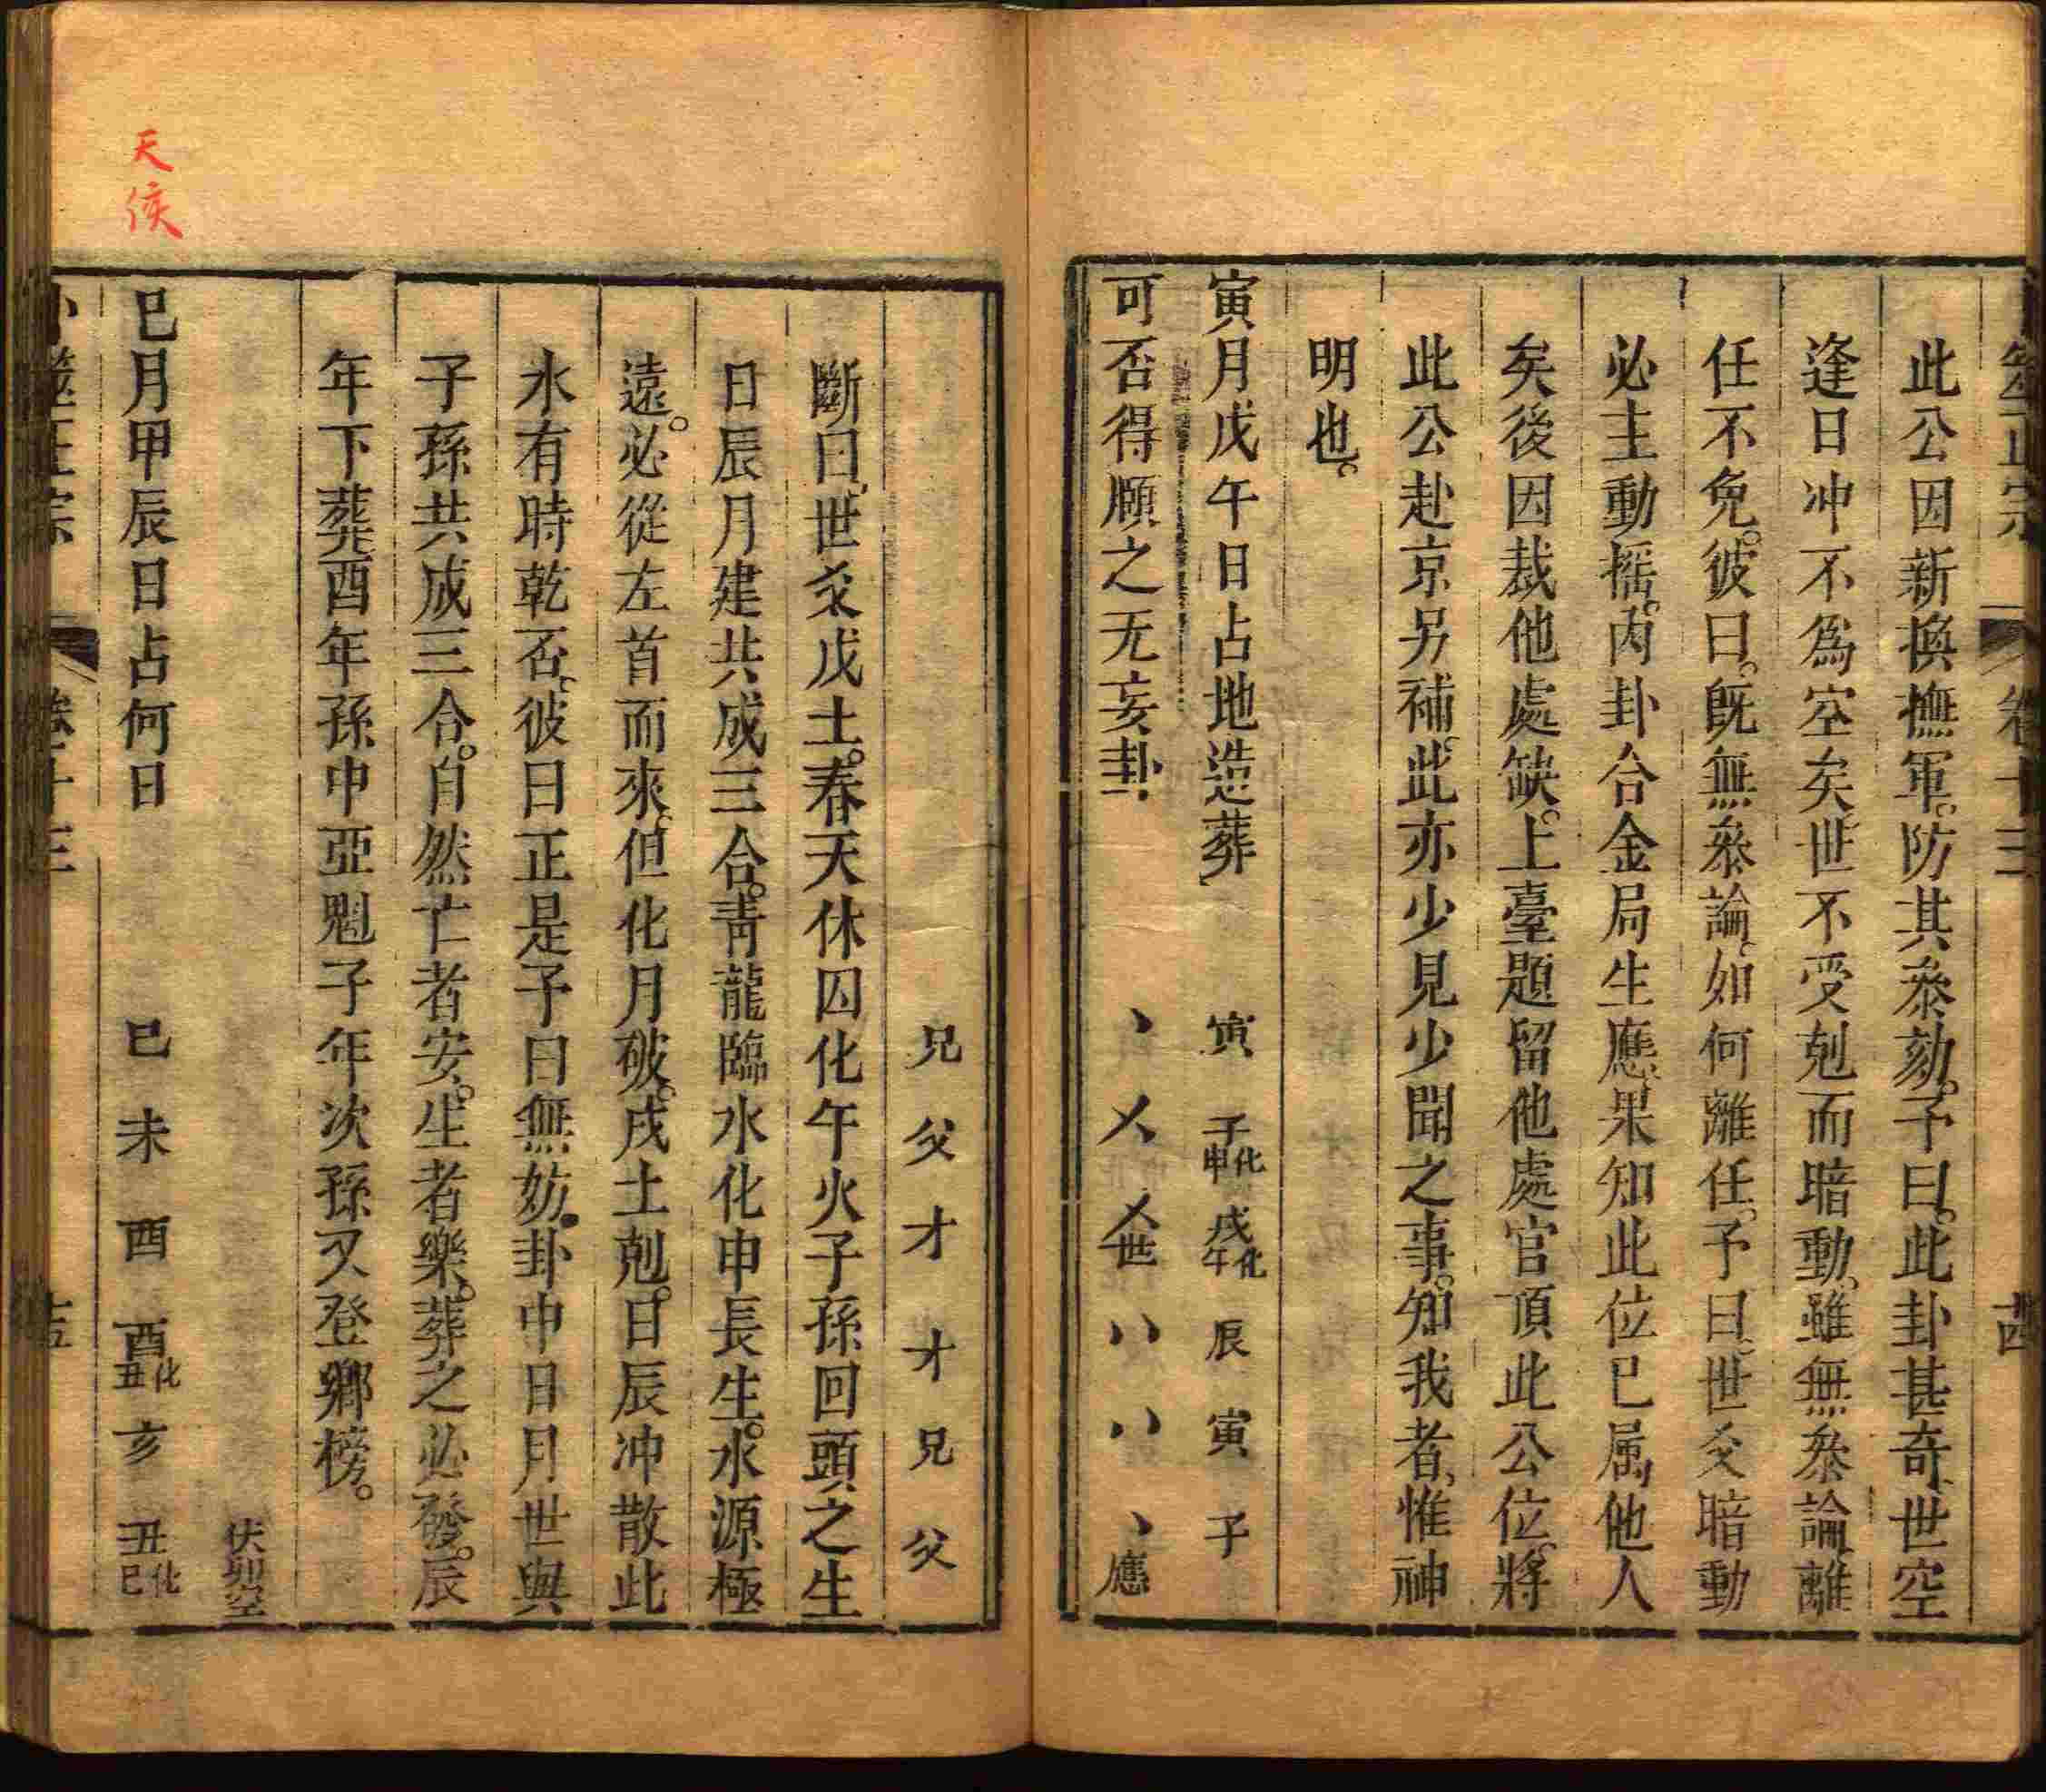 卜筮正宗 卷十三 十四
此公因新換撫軍。防其叅劾。予曰。此卦甚奇。世空
逢日冲不為空矣。世不受剋而暗動。雖無叅論。離
任不免。彼曰。既無叅論。如何離任。予曰。世爻暗動
必主動搖。內卦合金局生應。果知此位已属他人
矣後因裁他處缺。上臺題留他處官頂此公位。將
此公赴京另補。此亦少見少聞之事。知我者惟神
明也。
寅月戊午日占地造葬 寅 子化申 戌化午 辰 寅 子
可否得頤之无妄卦 、 乂 乂世 八 八 、應
兄 父 才 才 兄 父
斷曰。世爻戊土。春天休囚化午火子孫回頭之生
日辰月建共成三合。青龍臨水化申長生。水源極
遠。必從左首而來。但化月破。戌土剋。日辰冲散此
水有時乾否。彼曰正是予曰無妨。卦中日月世與
子孫共成三合。自然亡者安。生者樂。葬之必發。辰
年下葬酉年孫中亞魁子年次孫又登鄉榜。
伏卯空
巳月甲辰日占何日 巳 未 酉 酉化丑 亥 丑化巳
卜筮正宗 卷十三 十五
天候